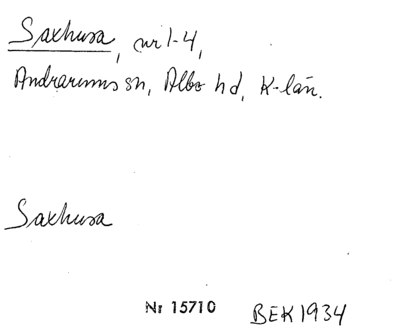 Saxhusa, nr 1-4,
Andrarums sn, Albo hd, K-län.
Saxhusa
Nr 15710 BEK 1934